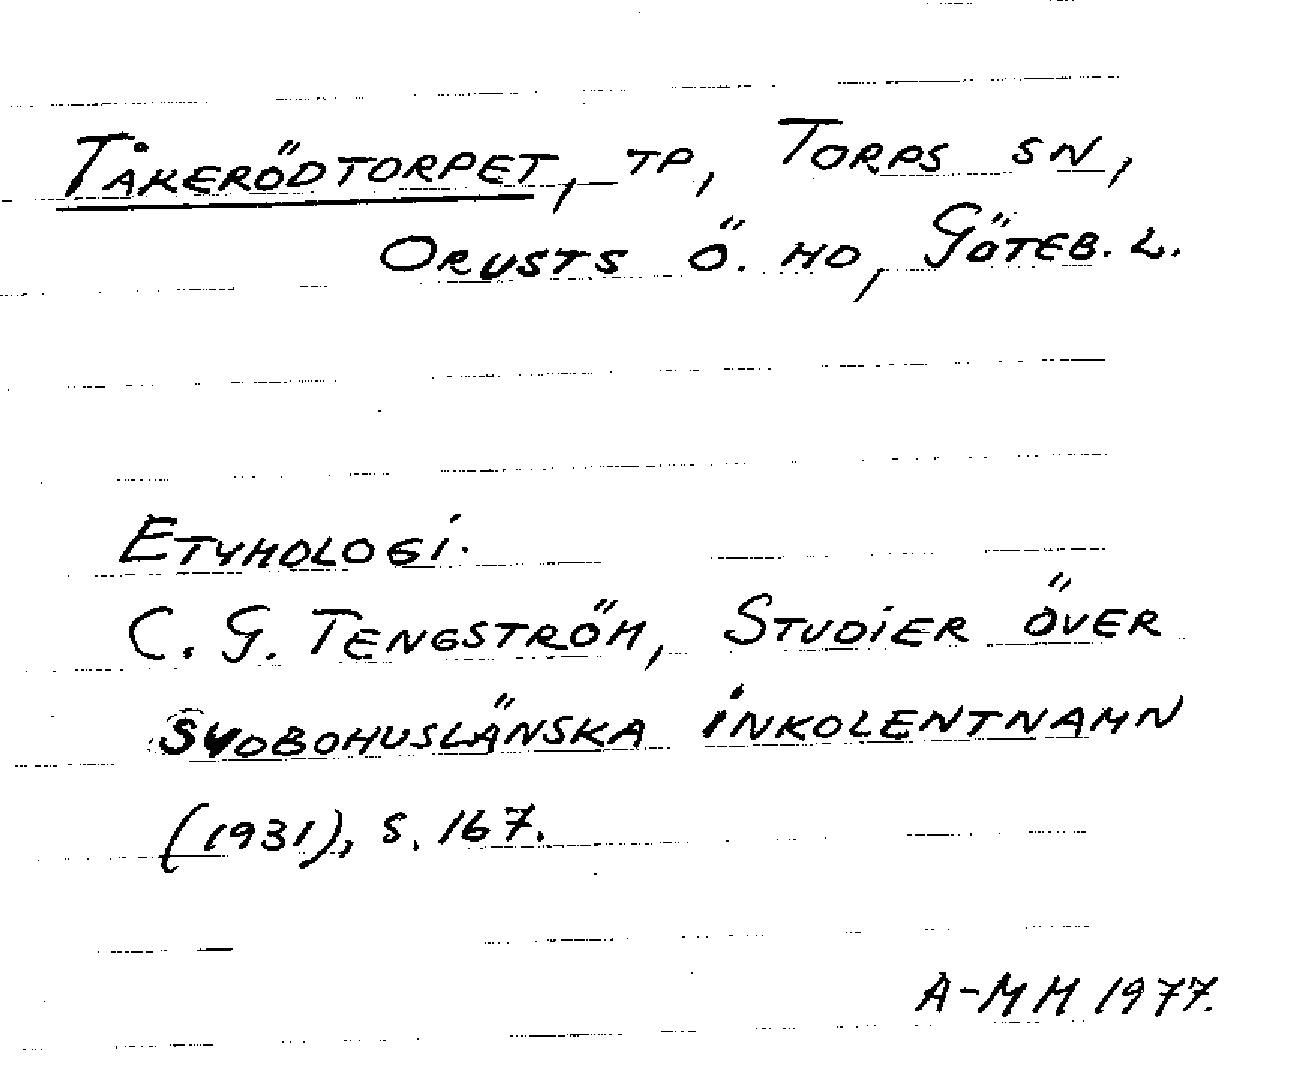 Tåkerödtorpet, tp, Torps sn,
Orusts Ö. hd, Göteb. L.
Etymologi.
C. G. Tengström, Studier över
sydbohuslänska inkolentnamn
(1931), s. 167.
A-MH 1977.